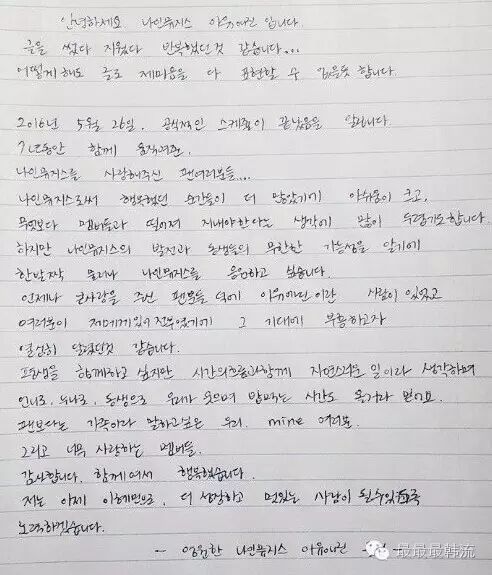 안녕하세요 나인뮤지스 이유애린 입니다.
글을 썼다 지웠다 반복했던것 같습니다...
어떻게 해도 글로 제마음을 다 표현할 수 없을듯 합니다.
2016년 5월 26일. 공식적인 스케줄이 끝났음을 알립니다
7년동안 함께 움직여준.
나인뮤지스를 사랑해주신 팬여러분들...
나인뮤지스로써 행복했던 순간들이 더 많았기에 아쉬움이 크고,
무엇보다 멤버들과 떨어져 지내야한다는 생각에 많이 두렵기도합니다.
하지만 나인뮤지스의 발전과 동생들의 무한한 가능성을 알기에
한발짝 물러나 나인뮤지스를 응원하고 싶습니다.
언제나 큰사랑을 주신 팬분들 덕에 이유애린이란 사람이 있었고
여러분이 제에게있어 전부였기에 그 기대에 부흥하고자
열심히 달렸던것 같습니다.
평생을 함께하고 싶지만 시간의흐름과함께 자연스러운 일이라 생각하며
언니로, 누나로, 동생으로 우리가 웃으며 밥먹는 시간도 올거라 믿어요.
팬보다는 가족이라 말하고싶은 우리. mine 여러분.
그리고 너무 사랑하는 멤버들.
감사합니다. 함께여서 행복했습니다.
저는 이제 이혜민으로, 더 성장하고 멋있는 사람이 될수있도록
노력하겠습니다.
- 영원한 나인뮤지스 이유애린 -
最最最韩流